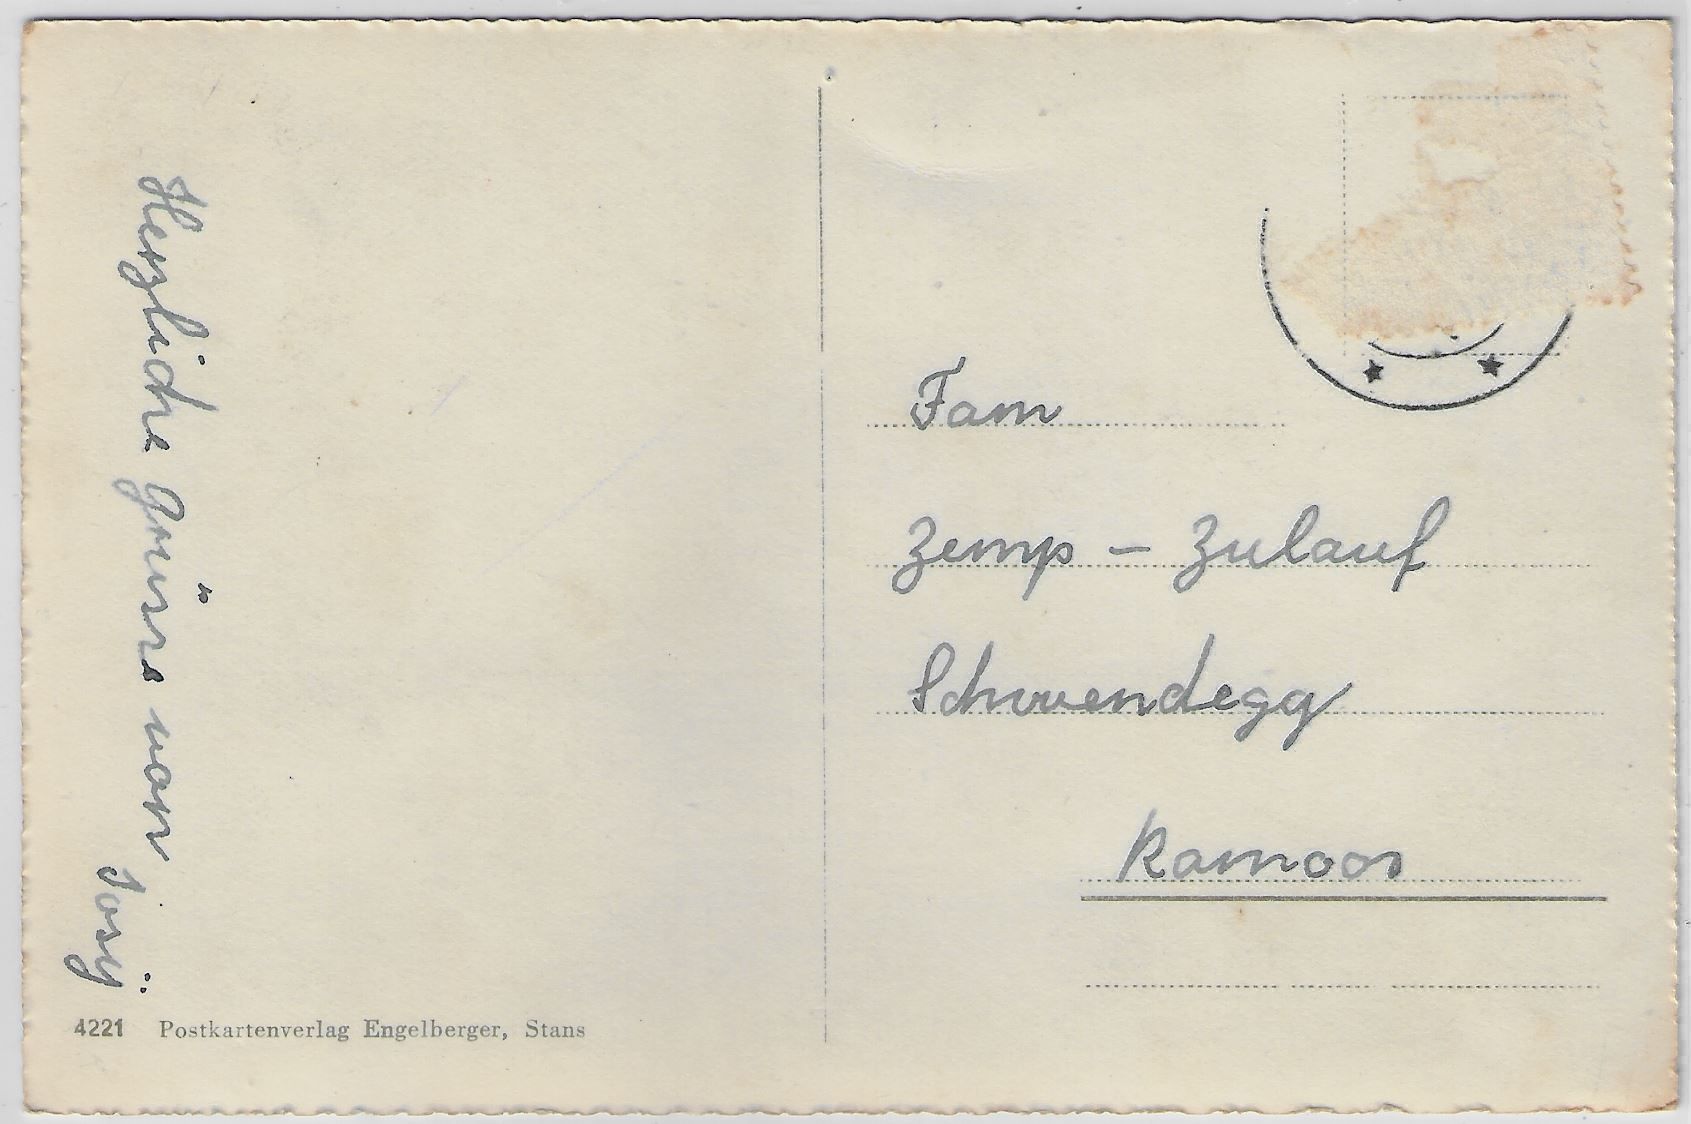 Herzliche Grüsse von
Josÿ
4221 Postkartenverlag Engelberger, Stans
Fam
Zemp – Zulauf
Schwendegg
Romoos